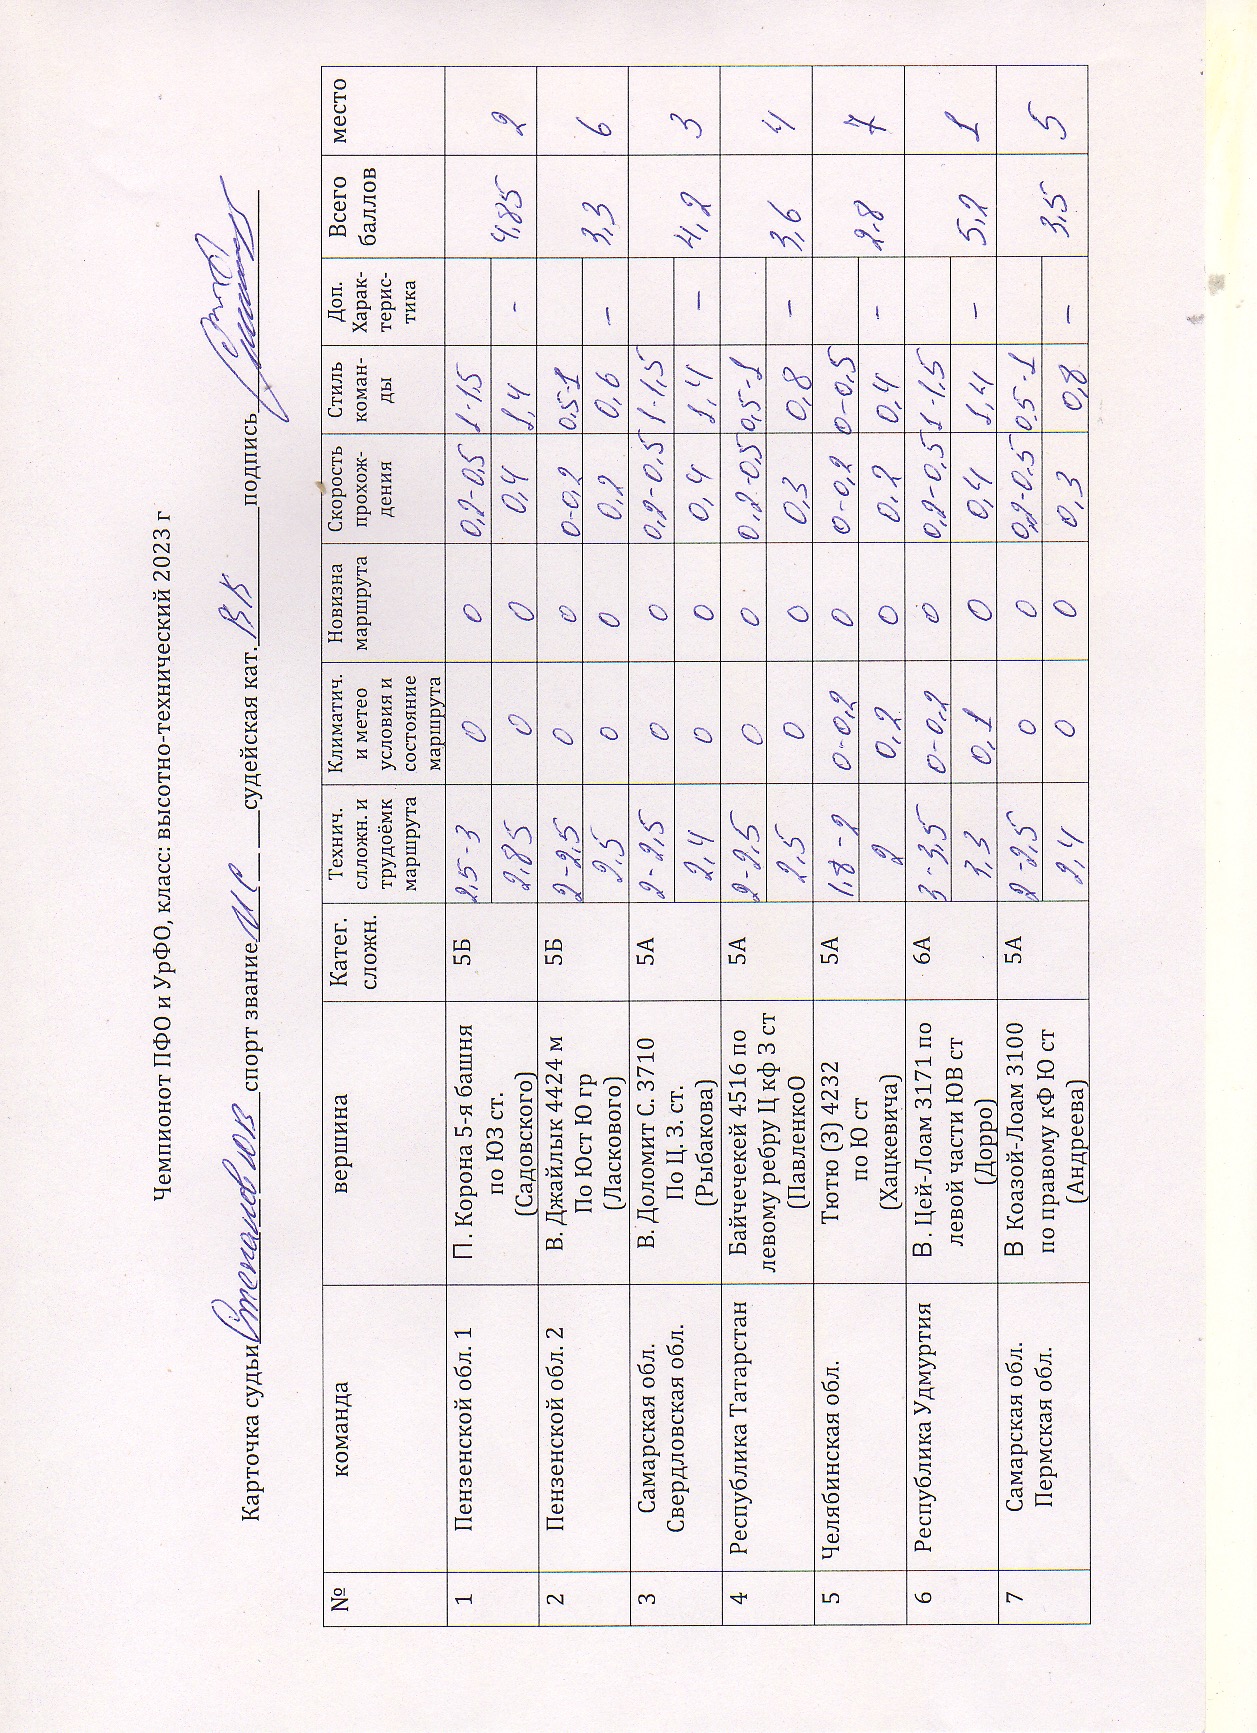 Чемпионот ПФО и УрФО, класс: высотно-технический 2023 г
Карточка судьи Степанов Ю В спорт звание МС судейская кат. ВК подпись
№ команда вершина Катег. сложн. Технич. слложн. и трудоёмк маршрута Климатич. и метео условия и состояние маршрута Новизна маршрута Скорость прохож- дения Стиль коман- ды Доп. Харак- терис- тика Всего баллов место
1 Пензенской обл. 1 П. Корона 5-я башня по ЮЗ ст. (Садовского) 5Б 2,5-3 0 0 0,2-0,5 1-1,5
2,85 0 0 0,4 1,4 – 4,85 2
2 Пензенской обл. 2 В. Джайлык 4424 м По Юст Ю гр (Ласкового) 5Б 2-2,5 0 0 0-0,2 0,5-1
2,5 0 0 0,2 0,6 – 3,3 6
3 Самарская обл. Свердловская обл. В. Доломит С. 3710 По Ц. З. ст. (Рыбакова) 5А 2-2,5 0 0 0,2-0,5 1-1,5
2,4 0 0 0,4 1,4 – 4,2 3
4 Республика Татарстан Байчечекей 4516 по левому ребру Ц кф З ст (ПавленкоО 5А 2-2,5 0 0 0,2-0,5 0,5-1
2,5 0 0 0,3 0,8 – 3,6 4
5 Челябинская обл. Тютю (З) 4232 по Ю ст (Хацкевича) 5А 1,8-2 0-0,2 0 0-0,2 0-0,5
2 0,2 0 0,2 0,4 – 2,8 7
6 Республика Удмуртия В. Цей-Лоам 3171 по левой части ЮВ ст (Дорро) 6А 3-3,5 0-0,2 0 0,2-0,5 1-1,5
3,3 0,1 0 0,4 1,4 – 5,2 1
7 Самарская обл. Пермская обл. В Коазой-Лоам 3100 по правому кФ Ю ст (Андреева) 5А 2-2,5 0 0 0,2-0,5 0,5-1
2,4 0 0 0,3 0,8 – 3,5 5